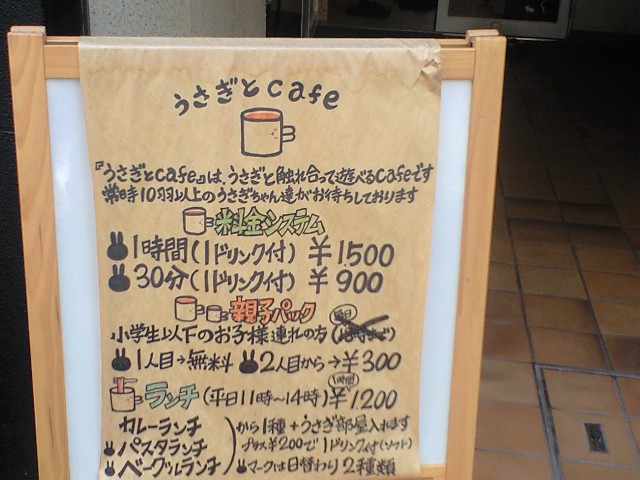 うさぎとcafe
『うさぎとcafe』は、うさぎと触れ合って遊べるcafeです
常時10羽以上のうさぎちゃん達がお待ちしております
料金システム
1時間(1ドリンク付) ¥1.500
30分(1ドリンク付) ¥900
親子パック
小学生以下のお子様連れの方
1人目→無料 2人目から→¥300
ランチ(平日11時〜14時) 1時間 ¥1.200
カレーランチ
パスタランチ
ベーグルランチ
から1種+うさぎ部屋入れます
プラス¥200で1ドリンク付(ソフト)
マークは日替わり2種類